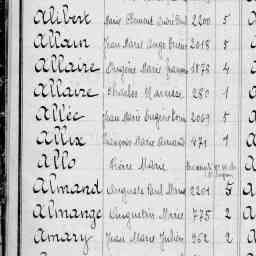 Alibert Marie Clément André 2200 5
Allain Jean Marie Ange 2018 5
Allaire Eugène Marie 1878 4
Allaire Charles Narcisse 280 1
Allée Jean Marie Eugène 2069 5
Allix François Marie Armand 471 1
Allo Pierre Marie
Almand Auguste Paul Marie 2201 5
Almange Augustin Marie 775 2
Amary Jean Marie Julien 962 2